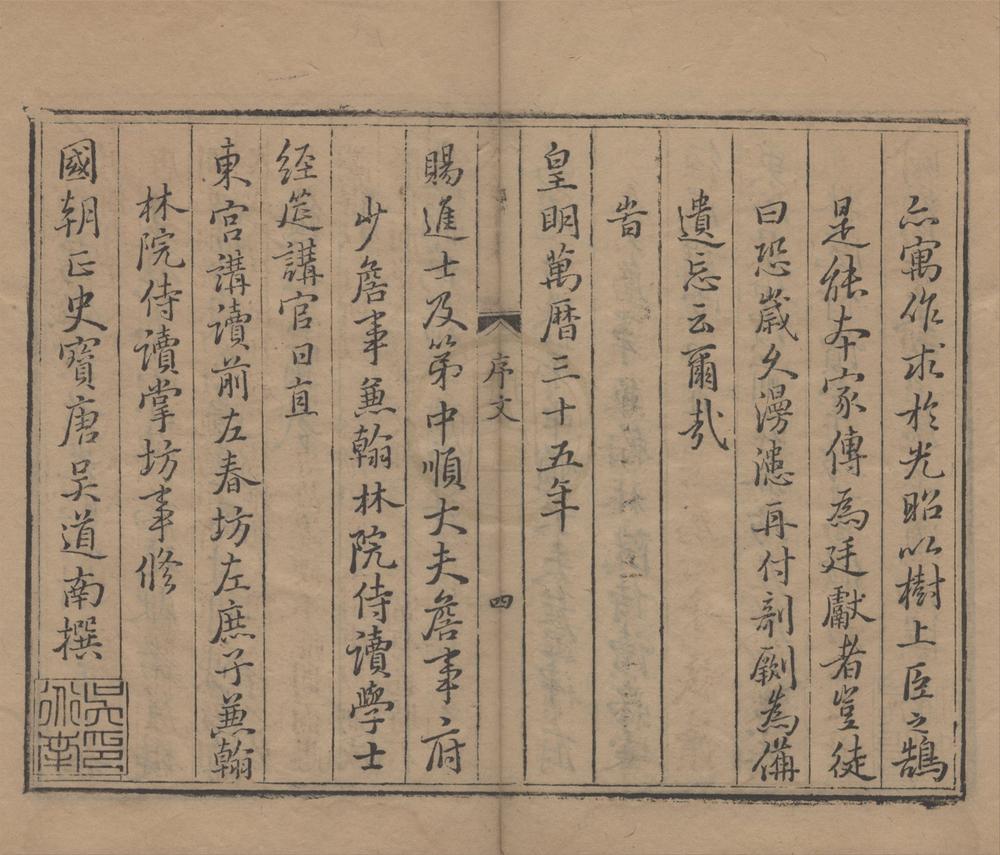 亦寓作求於光昭以樹上臣之鵠
是能本家傳為廷獻者豈徒
曰恐歲久漫漶再付剞劂為備
遺忘云爾哉
旹
皇明萬曆三十五年
序文
四
賜進士及第中順大夫詹事府
少詹事兼翰林院侍讀學士
經筵講官日直
東宮講讀前左春坊左庶子兼翰
林院侍讀掌坊事修
國朝正史寶唐吳道南撰
吳印
道南